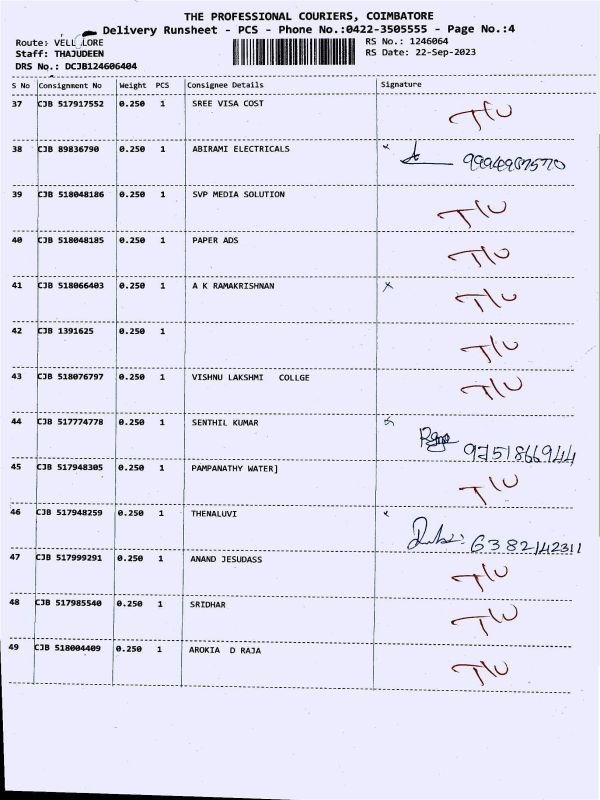 THE PROFESSIONAL COURIERS, COIMBATORE
Delivery Runsheet - PCS - Phone No.:0422-3505555 - Page No.:4
Route: VELLLORE RS No.: 1246064
Staff: THAJUDEEN RS Date: 22-Sep-2023
DRS No.: DCJB124606404
S No Consignment No Weight PCS Consignee Details Signature
37 CJB 517917552 0.250 1 SREE VISA COST T/U
38 CJB 89836790 0.250 1 ABIRAMI ELECTRICALS x 9994987570
39 CJB 518048186 0.250 1 SVP MEDIA SOLUTION T/U
40 CJB 518048185 0.250 1 PAPER ADS T/U
41 CJB 518066403 0.250 1 A K RAMAKRISHNAN x T/U
42 CJB 1391625 0.250 1 T/U
43 CJB 518076797 0.250 1 VISHNU LAKSHMI COLLGE T/U
44 CJB 517774778 0.250 1 SENTHIL KUMAR 9751866944
45 CJB 517948305 0.250 1 PAMPANATHY WATER] T/U
46 CJB 517948259 0.250 1 THENALUVI x 6382142311
47 CJB 517999291 0.250 1 ANAND JESUDASS T/U
48 CJB 517985540 0.250 1 SRIDHAR T/U
49 CJB 518004409 0.250 1 AROKIA D RAJA T/U